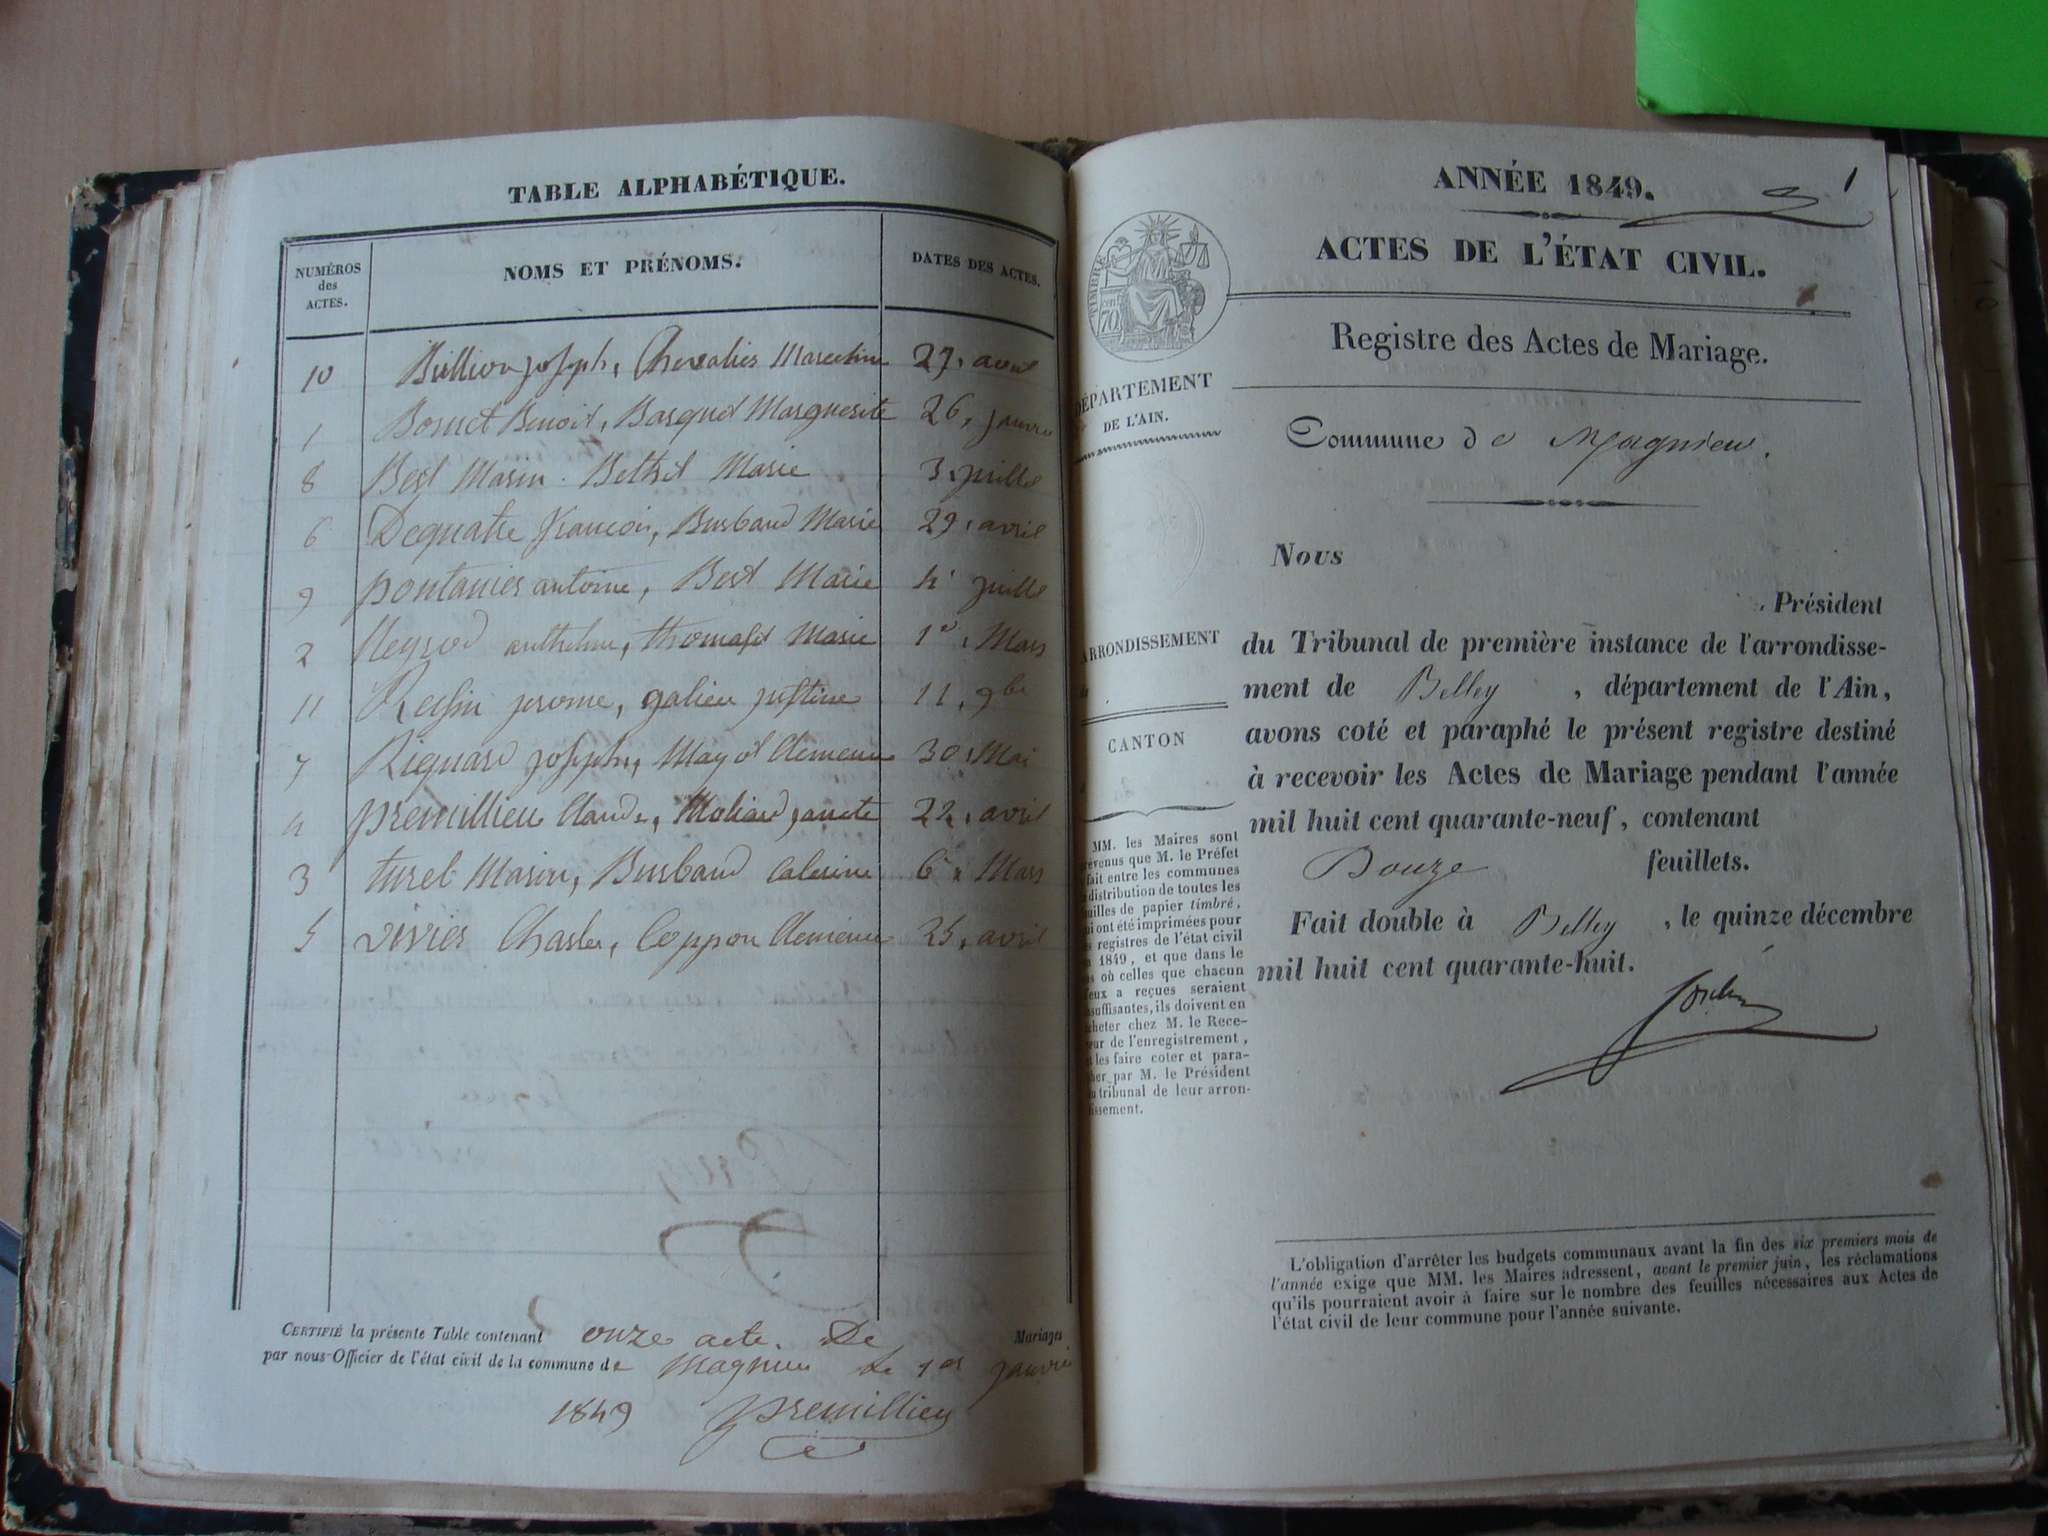 TABLE ALPHABÉTIQUE.
NUMÉROS
des
ACTES.
NOMS ET PRÉNOMS.
DATES DES ACTES.
10 Billion joseph, Chevalier Marceline 27, avril
1 Bornet Benoit, Barquet Marguerite 26, janvier
8 Best Marin. Bethet Marie 3, juillet
6 Dequatre francois, Burbaud Marie 29, avril
9 pontanier antoine, Best Marie 4 juillet
2 anthelme, thomasset Marie 1er, Mars
11 jerome, galien justine 11, 9bre
7 joseph, Mayot Clemence 30, Mai
4 premillieu Claude, 22, avril
3 turel Marin, Burbaud 6, Mars
5 vivier Charles, Coppon Clemence 25, avril
CERTIFIÉ la présente Table contenant onze acte. De Mariages
par nous Officier de l'état civil de la commune de Magnieu le 1er janvier
1849 premillieu
ANNÉE 1849. 1
ACTES DE L'ÉTAT CIVIL.
TIMBRE
70 cent
Registre des Actes de Mariage.
DÉPARTEMENT
DE L'AIN.
Commune de Magnieu.
Nous
, Président
ARRONDISSEMENT
CANTON
du Tribunal de première instance de l'arrondisse-
ment de Belley, département de l'Ain,
avons coté et paraphé le présent registre destiné
à recevoir les Actes de Mariage pendant l'année
mil huit cent quarante-neuf, contenant
Douze feuillets.
Fait double à Belley, le quinze décembre
mil huit cent quarante-huit.
MM. les Maires sont
prévenus que M. le Préfet
fait entre les communes
distribution de toutes les
feuilles de papier timbré,
qui ont été imprimées pour
registres de l'état civil
1849, et que dans le
cas où celles que chacun
d'eux a reçues seraient
insuffisantes, ils doivent en
acheter chez M. le Rece-
veur de l'enregistrement,
et les faire coter et para-
pher par M. le Président
du tribunal de leur arron-
dissement.
L'obligation d'arrêter les budgets communaux avant la fin des six premiers mois de
l'année exige que MM. les Maires adressent, avant le premier juin, les réclamations
qu'ils pourraient avoir à faire sur le nombre des feuilles nécessaires aux Actes de
l'état civil de leur commune pour l'année suivante.